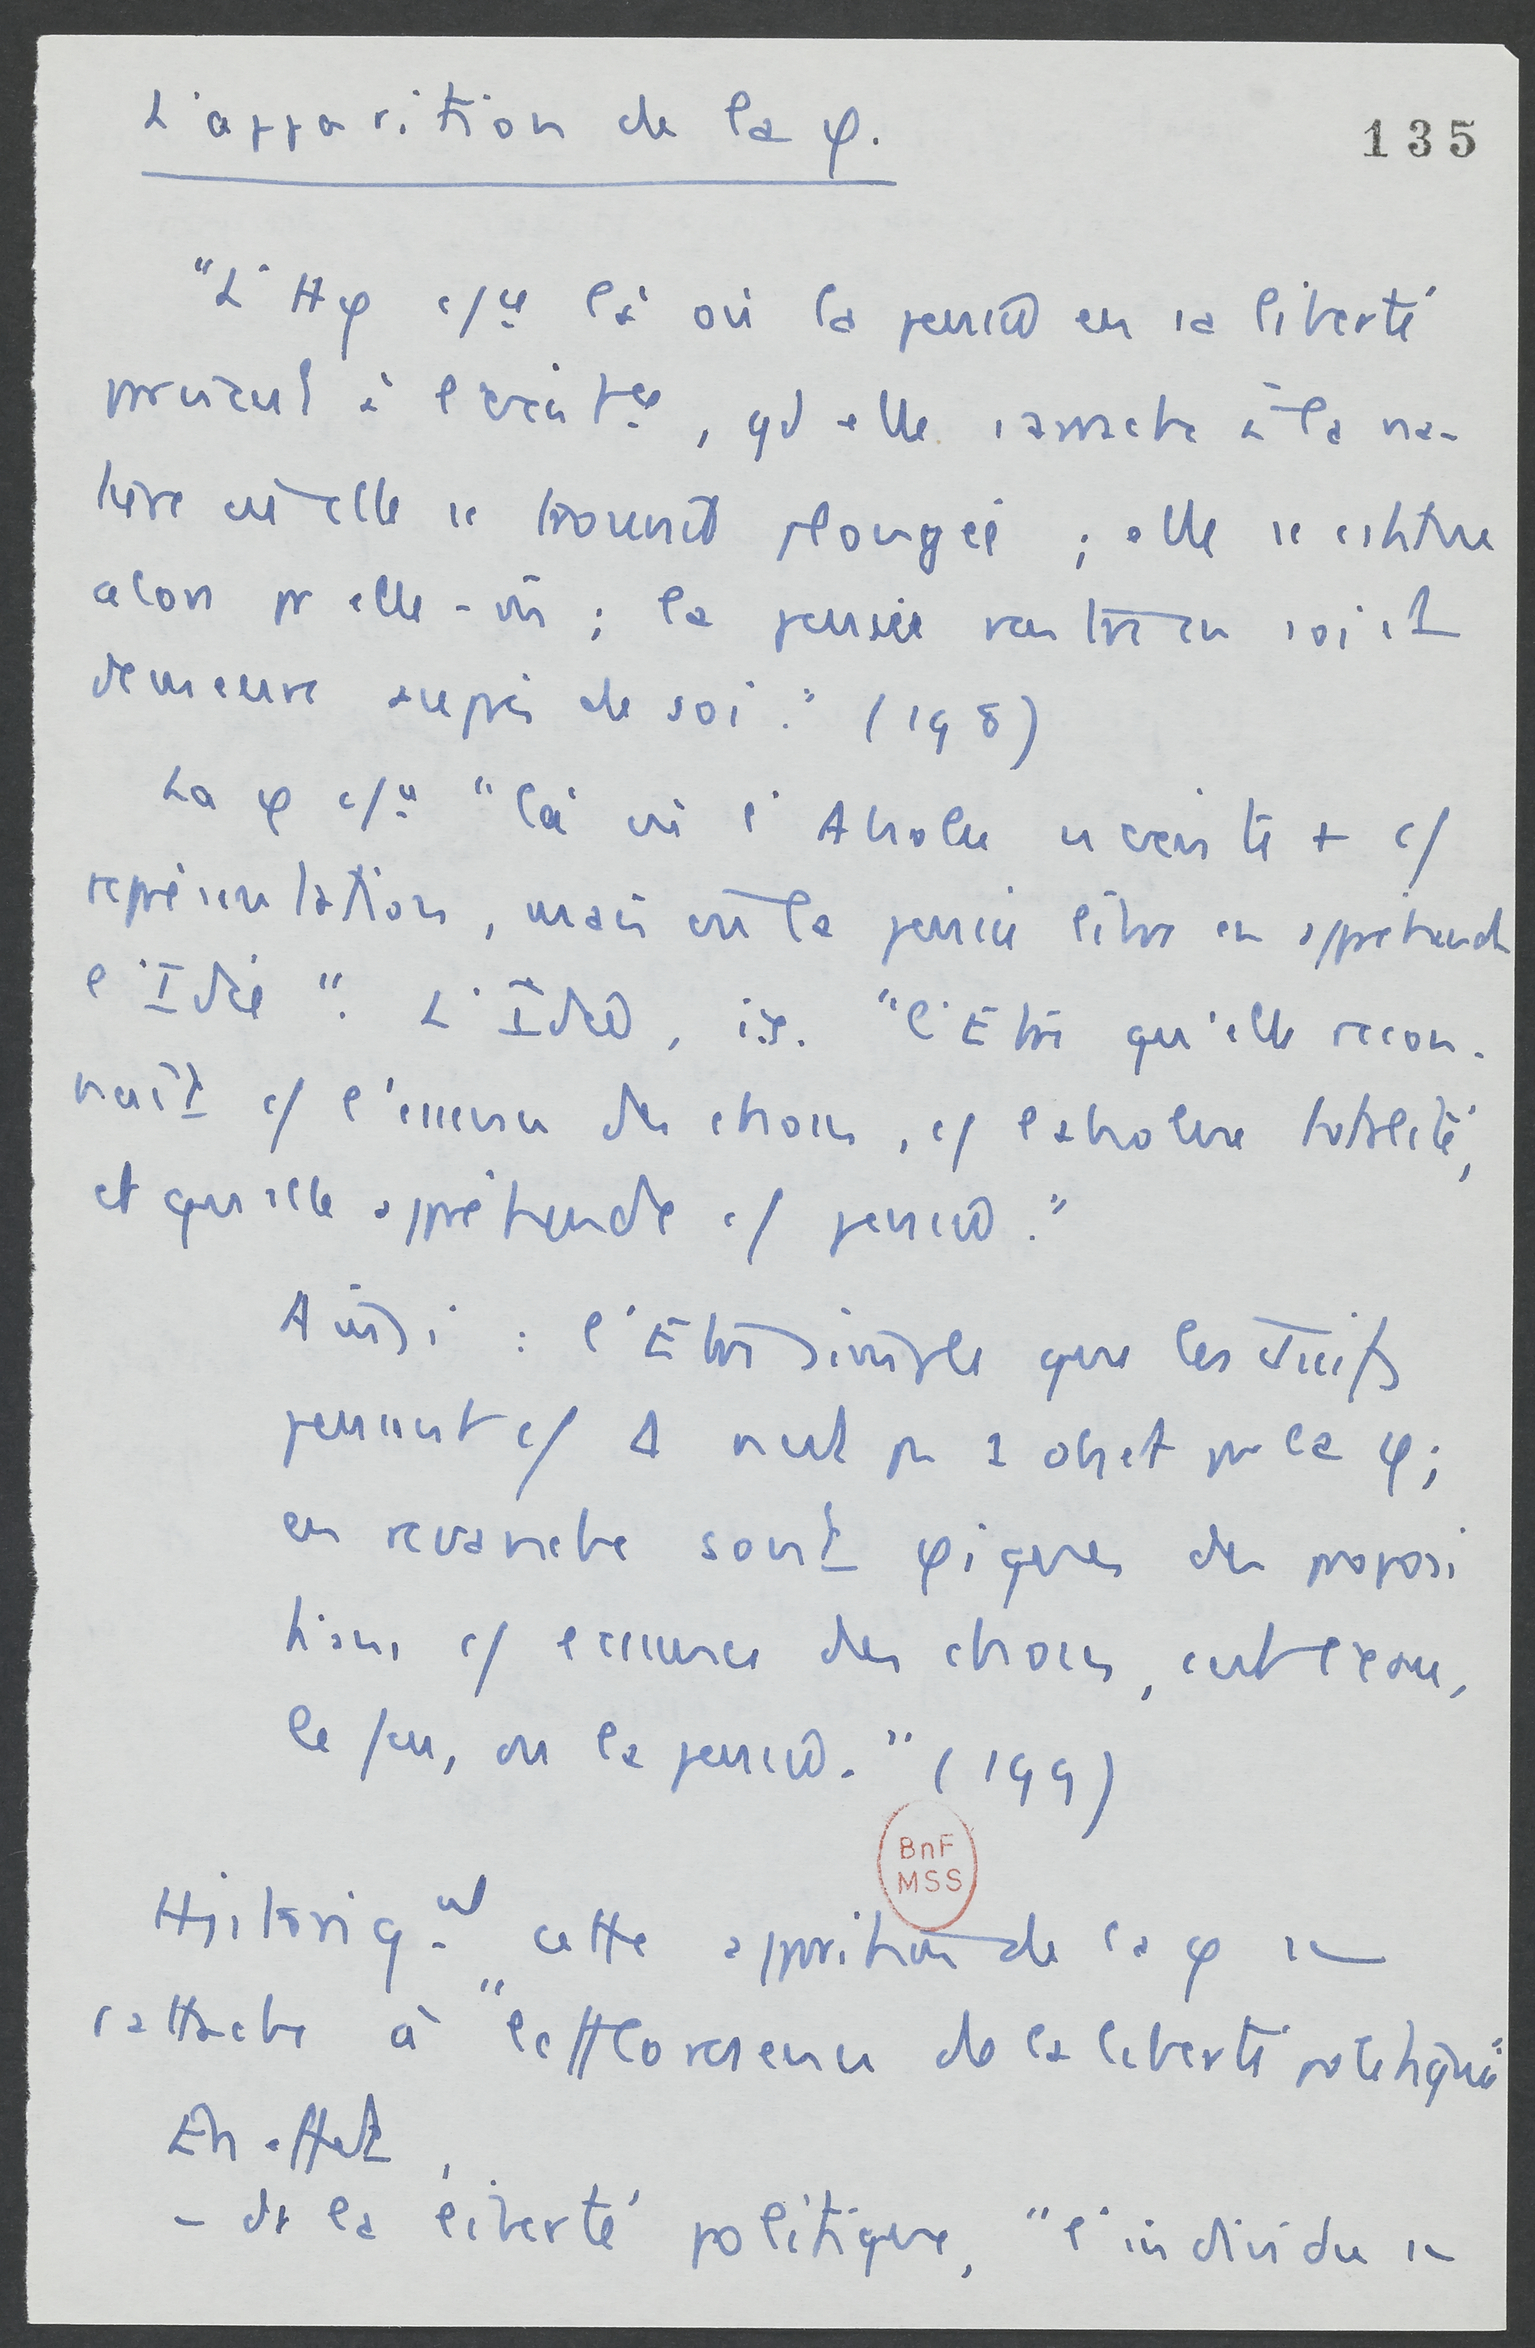 L'apparition de la φ.
135
"L'Hφ c/ce là où la pensée en sa liberté
parvient à l'exist.ce, qd elle s'arrache à la na-
ture où elle se trouvait plongée ; elle se constitue
alors pr elle-m̂ ; la pensée rentre en soi et
demeure auprès de soi." (198)
La φ c/ce "là où l'Absolu n'existe + c/
représentation, mais où la pensée libre en appréhende
l'Idée". L'Idée, i.e. "l'Être qu'elle recon-
naît c/ l'essence des choses, c/ l'absolue totalité,
et qu'elle appréhende c/ pensée."
Ainsi : l'Être simple que les Juifs
pensent c/ A n'est pas 1 objet pr la φ ;
en revanche sont φiques des proposi
tions c/ essence des choses, c'est l'eau,
le feu, ou la pensée." (199)
BnF
MSS
Historiq.nt cette apparition de la φ se
rattache à "l'efflorescence de la liberté politique"
En effet,
- ds la liberté politique, "l'individu se